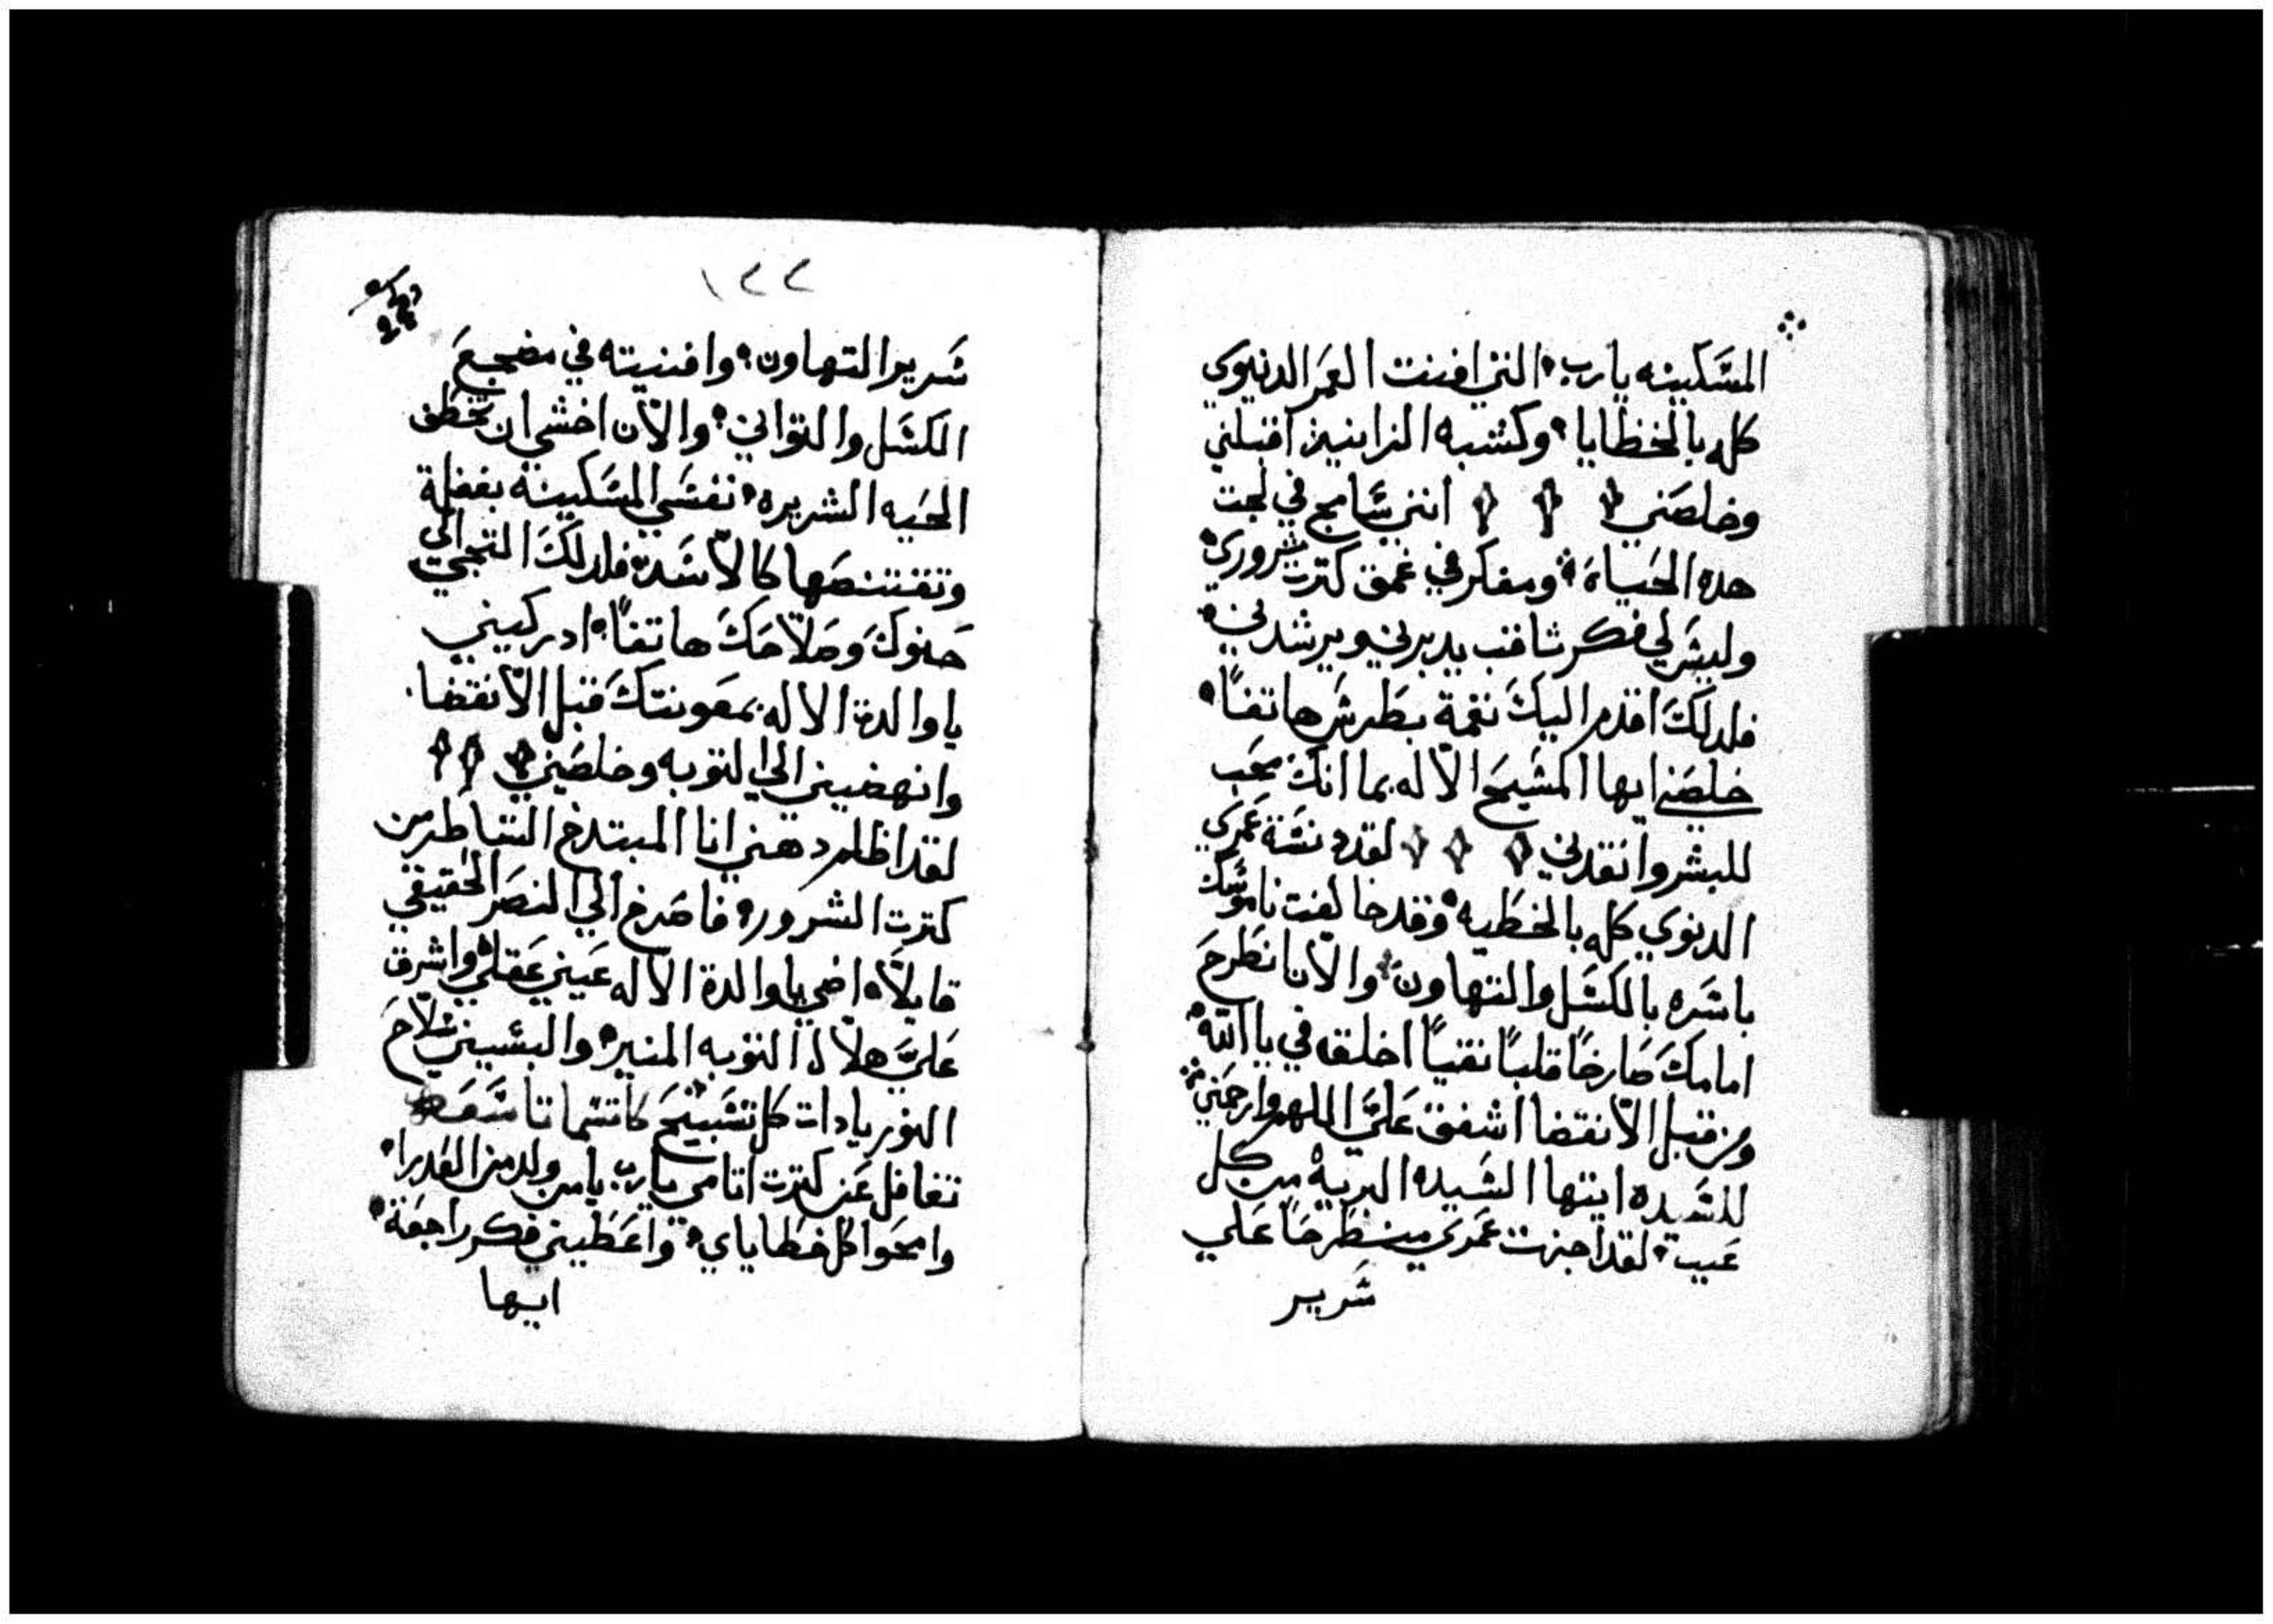 المسَكينه يارب، التي افنت العَمر الدنيوي
كله بالخطايا، وكشبه الزانيه اقبلني
وخلصَني انني سَابح في لجت
هده الحَياة، ومفكر في عمق كترت شروري،
وليسَ لي فكر ثاقب يدبرني ويرشدني،
فلدلكَ اقدم اليكَ نغمة بطرسَ هاتفاً،
خلصَني ايها المسَيحَ الاله بما انك محَب
للبشر وانقدني لقد دنسَة عَمري
الدنوي كله بالخطيه، وقد خالفت ناموسَك
باسَره بالكسَل والتهاون، والان انطرحَ
امامكَ صَارخاً قلباً نقياً اخلق في يا الله،
ومن قبل الانقضا اشفق عَليَّ اللهم وارحمَني
للسَيده ايتها السَيده البريه من كل
عَيب، لقد اجزت عَمري منطرحَاً عَلي
سَرير
١٢٢
سَرير التهاون، وافنيته في مضجعَ
الكسَل والتواني، والان اخشي ان تخطف
الحَيه الشريره، نفسَي المسَكينه بغفلة
وتقتنصَها كالاسَد، فلدلكَ التجي الي
حَنوكَ وصَلاحَكَ هاتفاً، ادركيني
ياوالدة الاله بمعَونتكَ قبل الانقضا،
وانهضيني الي التوبه وخلصَيني
لقد اظلم دهني انا المبتدخ الشاطر من
كترت الشرور، فاصَرخ الي النصَر الحَقيقي
قايلاً، اضي ياوالدة الاله عَيني عَقلي، واشرق
عَليَّ هلال التوبه المنير، والبسَيني سَلاحَ
النور يادات كل تسَبيحَ
تغافل عَن كترت اتامي يارب يامن ولد من العَدرا،
وامحَوا كل خطاياي، واعَطيني فكر راجعَة،
ايها